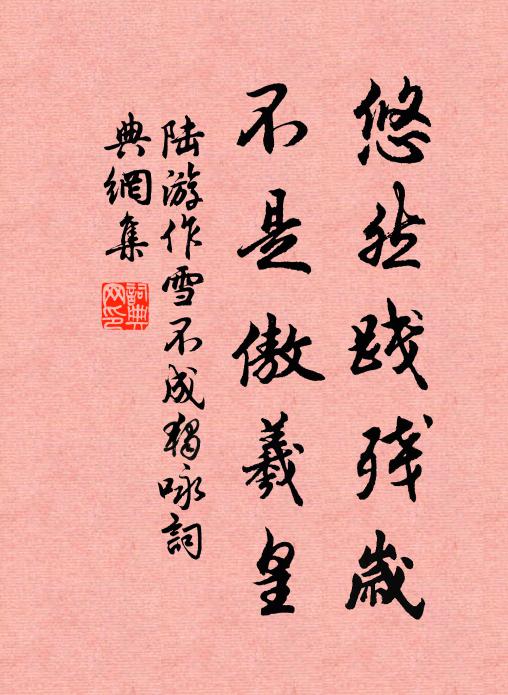 悠然践残歲
不是傲羲皇
陆游作雪不成獨咏詞
典網集
詞典网印